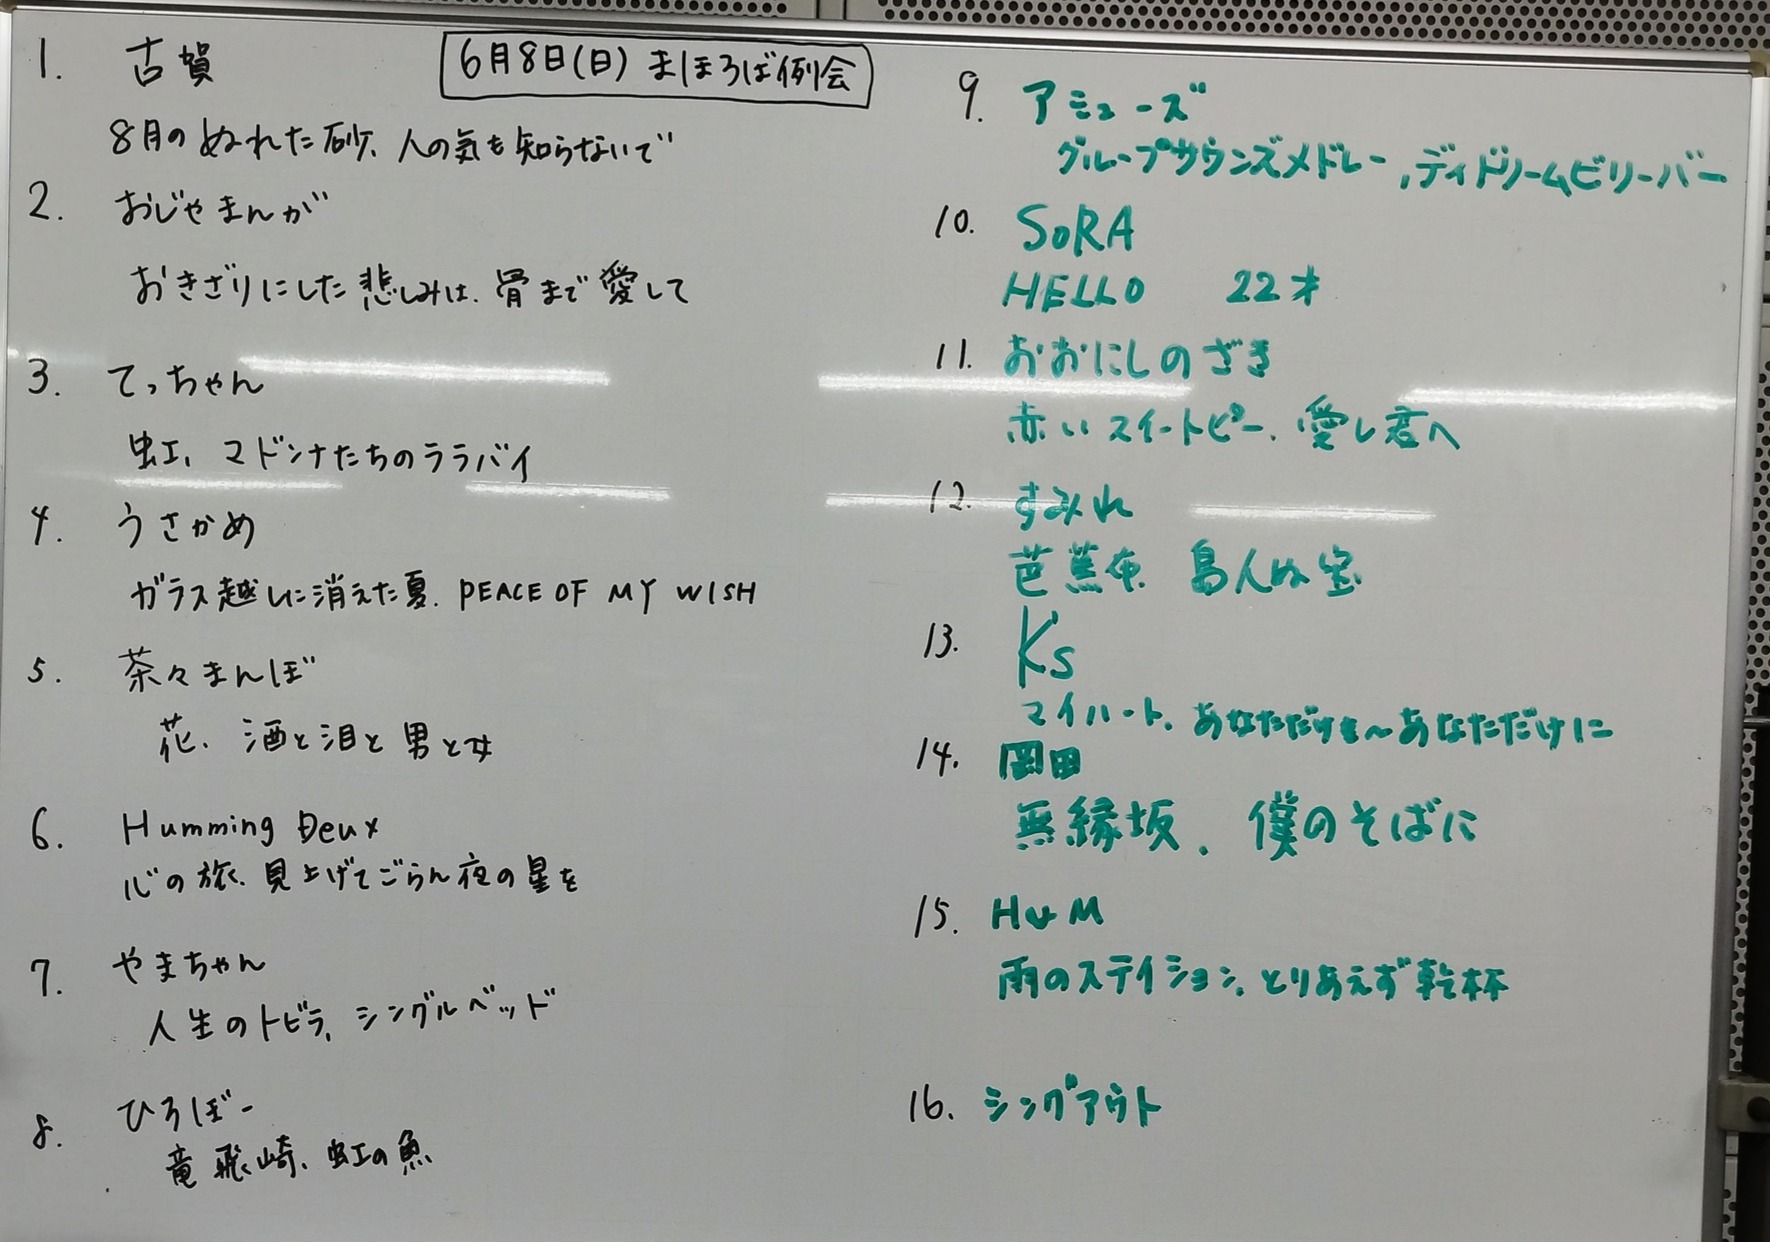 6月8日(日) まほろば例会
1. 古賀
8月のぬれた砂、人の気も知らないで
2. おじゃまんが
おきざりにした悲しみは、骨まで愛して
3. てっちゃん
虹、マドンナたちのララバイ
4. うさかめ
ガラス越しに消えた夏、PEACE OF MY WISH
5. 茶々まんぼ
花、酒と泪と男と女
6. Humming Deux
心の旅、見上げてごらん夜の星を
7. やまちゃん
人生のトビラ、シングルベッド
8. ひろぼー
竜飛崎、虹の魚
9. アミューズ
グループサウンズメドレー,ディドリームビリーバー
10. SoRA
HELLO 22才
11. おおにしのざき
赤いスイートピー、愛し君へ
12. すみれ
芭蕉布、島人ぬ宝
13. K's
マイハート、あなただけを〜あなただけに
14. 岡田
無縁坂、僕のそばに
15. HuM
雨のステイション、とりあえず乾杯
16. シングアウト